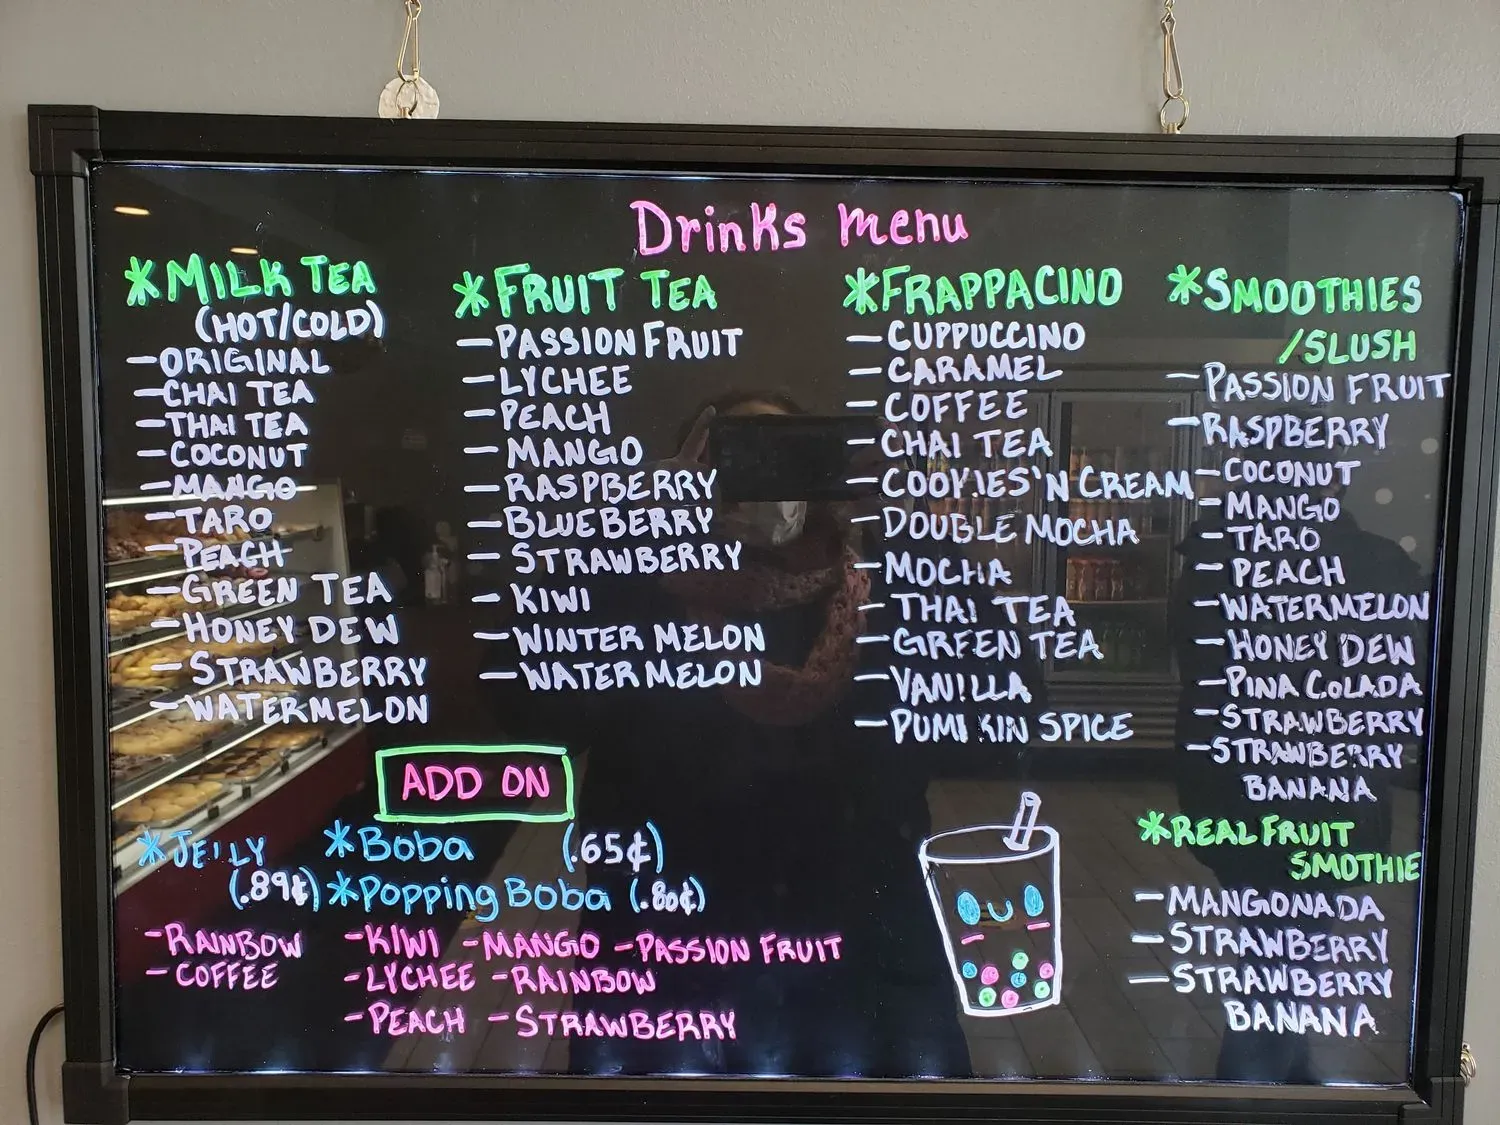 Drinks menu
*MILK TEA
(HOT/COLD)
-ORIGINAL
-CHAI TEA
-THAI TEA
-COCONUT
-MANGO
-TARO
-PEACH
-GREEN TEA
-HONEY DEW
-STRAWBERRY
-WATERMELON
*FRUIT TEA
-PASSION FRUIT
-LYCHEE
-PEACH
-MANGO
-RASPBERRY
-BLUEBERRY
-STRAWBERRY
-KIWI
-WINTER MELON
-WATER MELON
*FRAPPACINO
-CUPPUCCINO
-CARAMEL
-COFFEE
-CHAI TEA
-COOKIES'N CREAM
-DOUBLE MOCHA
-MOCHA
-THAI TEA
-GREEN TEA
-VANILLA
-PUMPKIN SPICE
*SMOOTHIES
/SLUSH
-PASSION FRUIT
-RASPBERRY
-COCONUT
-MANGO
-TARO
-PEACH
-WATERMELON
-HONEY DEW
-PINA COLADA
-STRAWBERRY
-STRAWBERRY
BANANA
*REAL FRUIT
SMOTHIE
-MANGONADA
-STRAWBERRY
-STRAWBERRY
BANANA
ADD ON
*JELLY
(.89¢)
-RAINBOW
-COFFEE
*Boba (.65¢)
*Popping Boba (.80¢)
-KIWI -MANGO -PASSION FRUIT
-LYCHEE -RAINBOW
-PEACH -STRAWBERRY